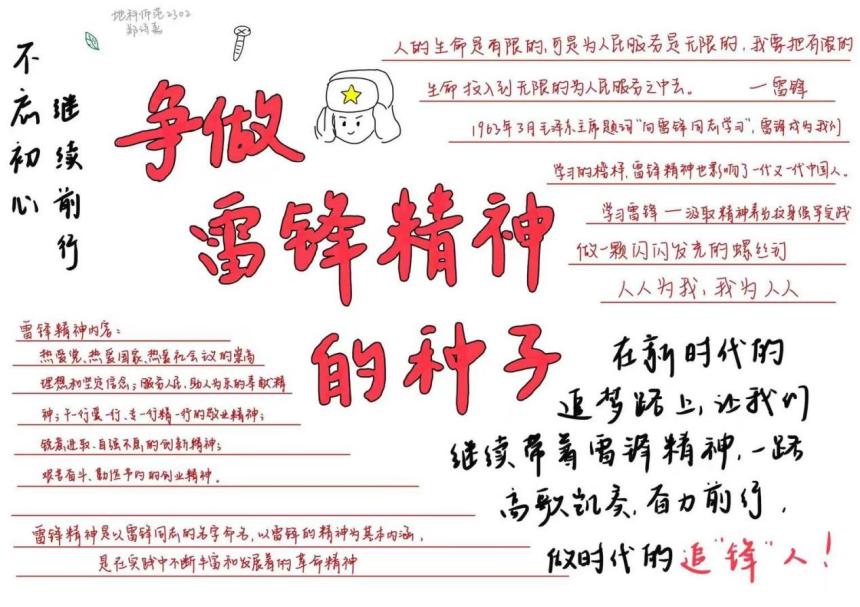 地科师范2302
郑诗嘉
不忘初心
继续前行
争做
雷锋精神
的种子
人的生命是有限的,可是为人民服务是无限的,我要把有限的
生命投入到无限的为人民服务之中去。 一雷锋
1963年3月毛泽东主席题词"向雷锋同志学习",雷锋成为我们
学习的榜样,雷锋精神也影响了一代又一代中国人。
学习雷锋一汲取精神养分投身强军实践
做一颗闪闪发光的螺丝钉
人人为我,我为人人
雷锋精神内容:
热爱党、热爱国家、热爱社会主义的崇高
理想和坚定信念;服务人民,助人为乐的奉献精
神;干一行爱一行、专一行精一行的敬业精神;
锐意进取、自强不息的创新精神;
艰苦奋斗、勤俭节约的创业精神。
雷锋精神是以雷锋同志的名字命名,以雷锋的精神为基本内涵,
是在实践中不断丰富和发展着的革命精神
在新时代的
追梦路上,让我们
继续带着雷锋精神,一路
高歌凯奏,奋力前行,
做时代的追"锋"人!